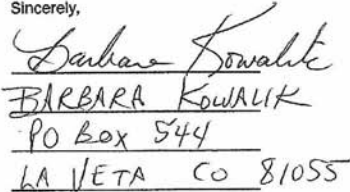 Sincerely,
Barbara Kowalik
BARBARA KOWALIK
PO Box 544
LA VETA CO 81055